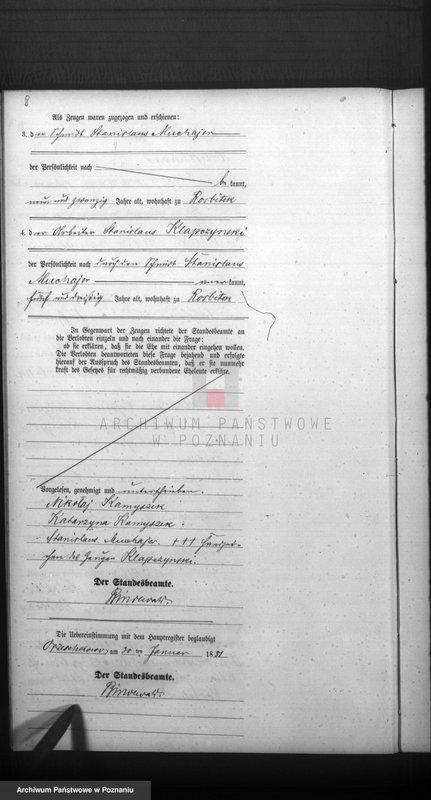 8
Als Zeugen waren zugezogen und erschienen:
3. der Schmidt Stanislaus Muchajer
der Persönlichkeit nach
bekannt,
neun und zwanzig Jahre alt, wohnhaft zu
4. der Arbeiter Stanislaus Klapczynski
der Persönlichkeit nach durch den Schmidt Stanislaus
Muchajer anerkannt,
fünf und dreißig Jahre alt, wohnhaft zu
In Gegenwart der Zeugen richtete der Standesbeamte an
die Verlobten einzeln und nach einander die Frage:
ob sie erklären, daß sie die Ehe mit einander eingehen wollen.
Die Verlobten beantworteten diese Frage bejahend und erfolgte
hierauf der Ausspruch des Standesbeamten, daß er sie nunmehr
kraft des Gesetzes für rechtmäßig verbundene Eheleute erkläre.
ARCHIWUM PAŃSTWOWE
W POZNANIU
Vorgelesen, genehmigt und unterschrieben.
Mikołaj Kamyszek
Katarzyna Kamyszek.
Stanislaus Muchajer. +++ Handzei-
chen des Zeugen Klapczynski.
Der Standesbeamte.
Die Uebereinstimmung mit dem Hauptregister beglaubigt
am 30 ten Januar 1881
Der Standesbeamte.
Archiwum Państwowe w Poznaniu